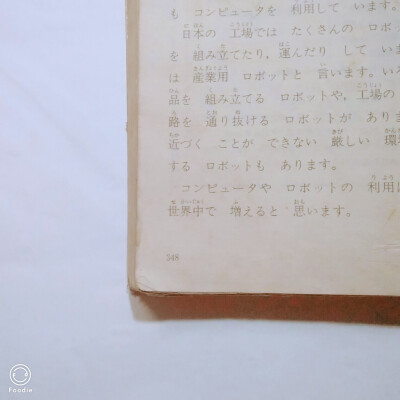 も コンピュータを 利用して います。
日本の 工場では たくさんの ロボ
を 組み立てたり，運んだり して いま
は 産業用 ロボットと 言います。い
品を 組み立てる ロボットや，工場の
路を 通り抜ける ロボットが あり
近づく ことが できない 厳しい 環
する ロボットも あります。
コンピュータや ロボットの 利用
世界中で 増えると 思います。
348
Foodie